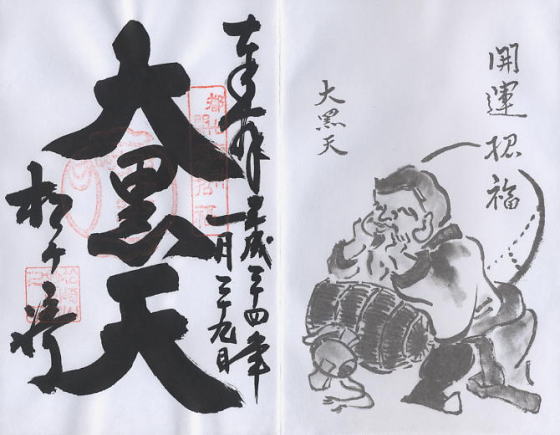 開運招福
大黒天
奉拝 平成二十四年
一月二十九日
大黒天
松ヶ崎